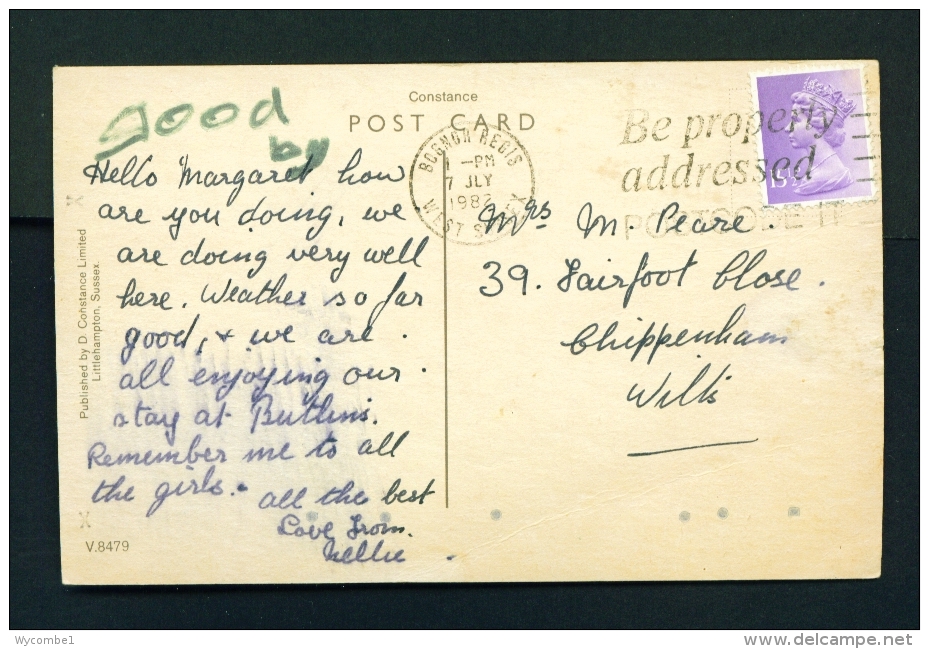 good
by
Constance
POST CARD
Hello Margaret how
are you doing, we
are doing very well
here. Weather so far
good, & we are
all enjoying our
stay at Butlins.
Remember me to all
the girls. all the best
Love from.
Nellie.
Published by D. Constance Limited
Littlehampton, Sussex.
V.8479
BOGNOR REGIS
1 -PM
7 JLY
1982
WEST
Be properly
addressed
POSTCODE IT
15½
Mrs M. Peare.
39. Fairfoot Close.
Chippenham
Wilts
Wycombe1
www.delcampe.net